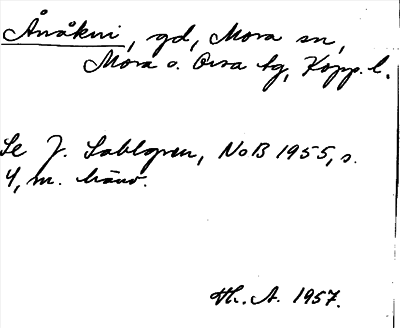 Ånåkni, gd, Mora sn,
Mora o. Orsa tg, Kopp. l.
Se J. Sahlgren, NoB 1955, s.
4, m. hänv.
Th. A. 1957.